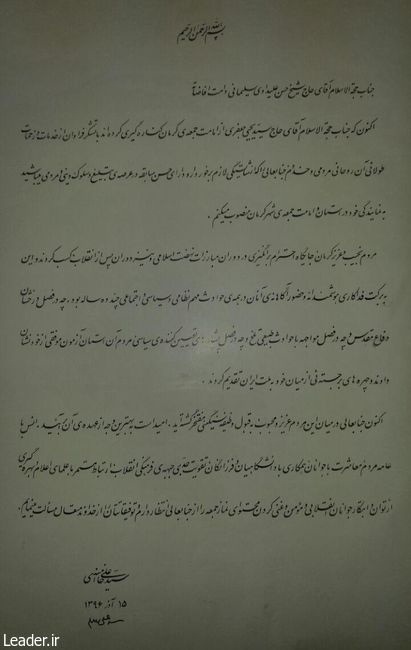 بسم الله الرحمن الرحیم
جناب حجة الاسلام آقای حاج شیخ حسن علیدادی سلیمانی دامت افاضاته
اکنون که جناب حجة الاسلام آقای حاج سید یحیی جعفری از امامت جمعه‌ی کرمان کناره گیری کرده‌اند با تشکر فراوان از خدمات و زحمات
طولانی آن روحانی مردمی و خدوم جنابعالی را که از شایستگی لازم برخوردار و دارای حسن سابقه در عرصه‌ی تبلیغ و سلوک دینی و مردمی میباشید
به نمایندگی خود در استان و امامت جمعه‌ی شهر کرمان منصوب میکنم.
مردم نجیب و عزیز کرمان جایگاه و احترام برانگیزی در دوران مبارزات نهضت اسلامی و نیز دوران پس از انقلاب کسب کردند و این
به برکت فداکاری هوشمندانه و حضور آگاهانه‌ی آنان در همه‌ی حوادث مهم نظامی و سیاسی و اجتماعی چند ده ساله بود، چه در فصل درخشان
دفاع مقدس و چه در فصل مواجهه با حوادث طبیعی تلخ و چه در فصل تعیین کننده‌ی سیاسی، مردم آن استان آزمون موفقی از خود نشان
دادند و چهره های برجسته‌ئی از میان خود به ملت ایران تقدیم کردند.
اکنون جنابعالی در میان این مردم عزیز و محبوب، به قبول وظیفه سنگینی مفتخر گشته‌اید. امید است به بهترین وجه از عهده‌ی آن برآئید. انس با
عامه مردم، معاشرت با جوانان، همکاری با دانشگاهیان و فرزانگان، تقویت عقبه‌ی جبهه‌ی فرهنگی انقلاب، ارتباط مستمر با علمای اعلام، بهره گیری
از توان و ابتکار جوانان انقلابی و مؤمن و غنی کردن محتوای نماز جمعه را از جنابعالی انتظار دارم و توفیقاتتان را از خداوند متعال مسألت مینمایم.
سید علی خامنه‌ای
۱۵ آذر ۱۳۹۶
Leader.ir